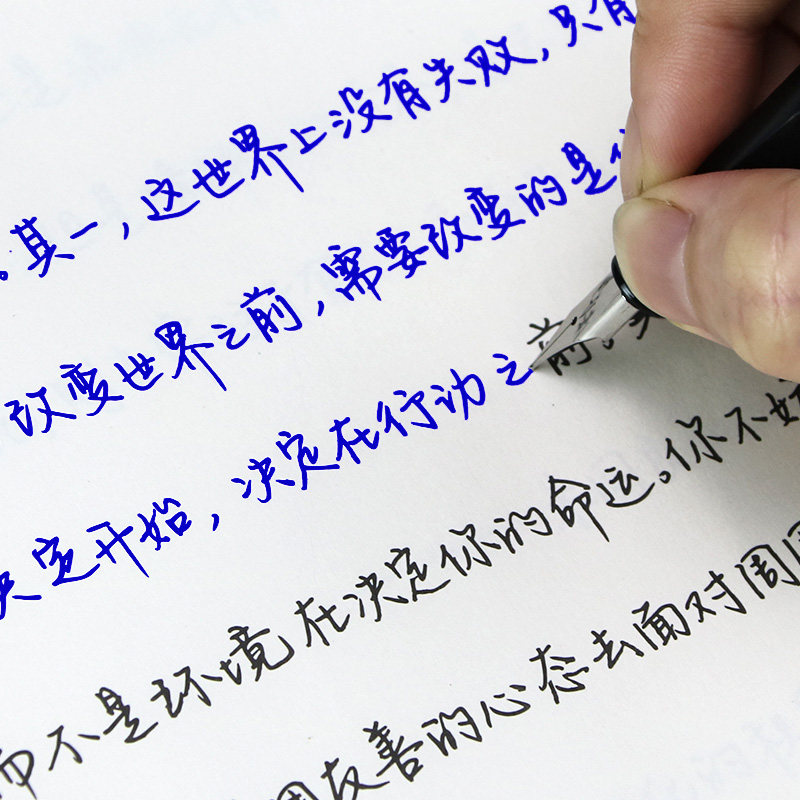 。其一，这世界上没有失败，只有
改变世界之前，需要改变的是
决定开始，决定在行动之前。
而不是环境在决定你的命运。你不好
周友善的心态去面对周围